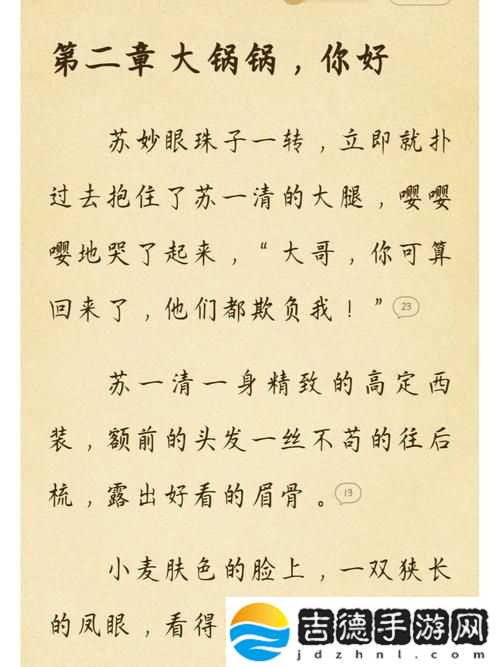 第二章 大锅锅，你好
苏妙眼珠子一转，立即就扑
过去抱住了苏一清的大腿，嘤嘤
嘤地哭了起来，“大哥，你可算
回来了，他们都欺负我！”23
苏一清一身精致的高定西
装，额前的头发一丝不苟的往后
梳，露出好看的眉骨。13
小麦肤色的脸上，一双狭长
的凤眼，看得
吉德手游网
jdzhnl.com